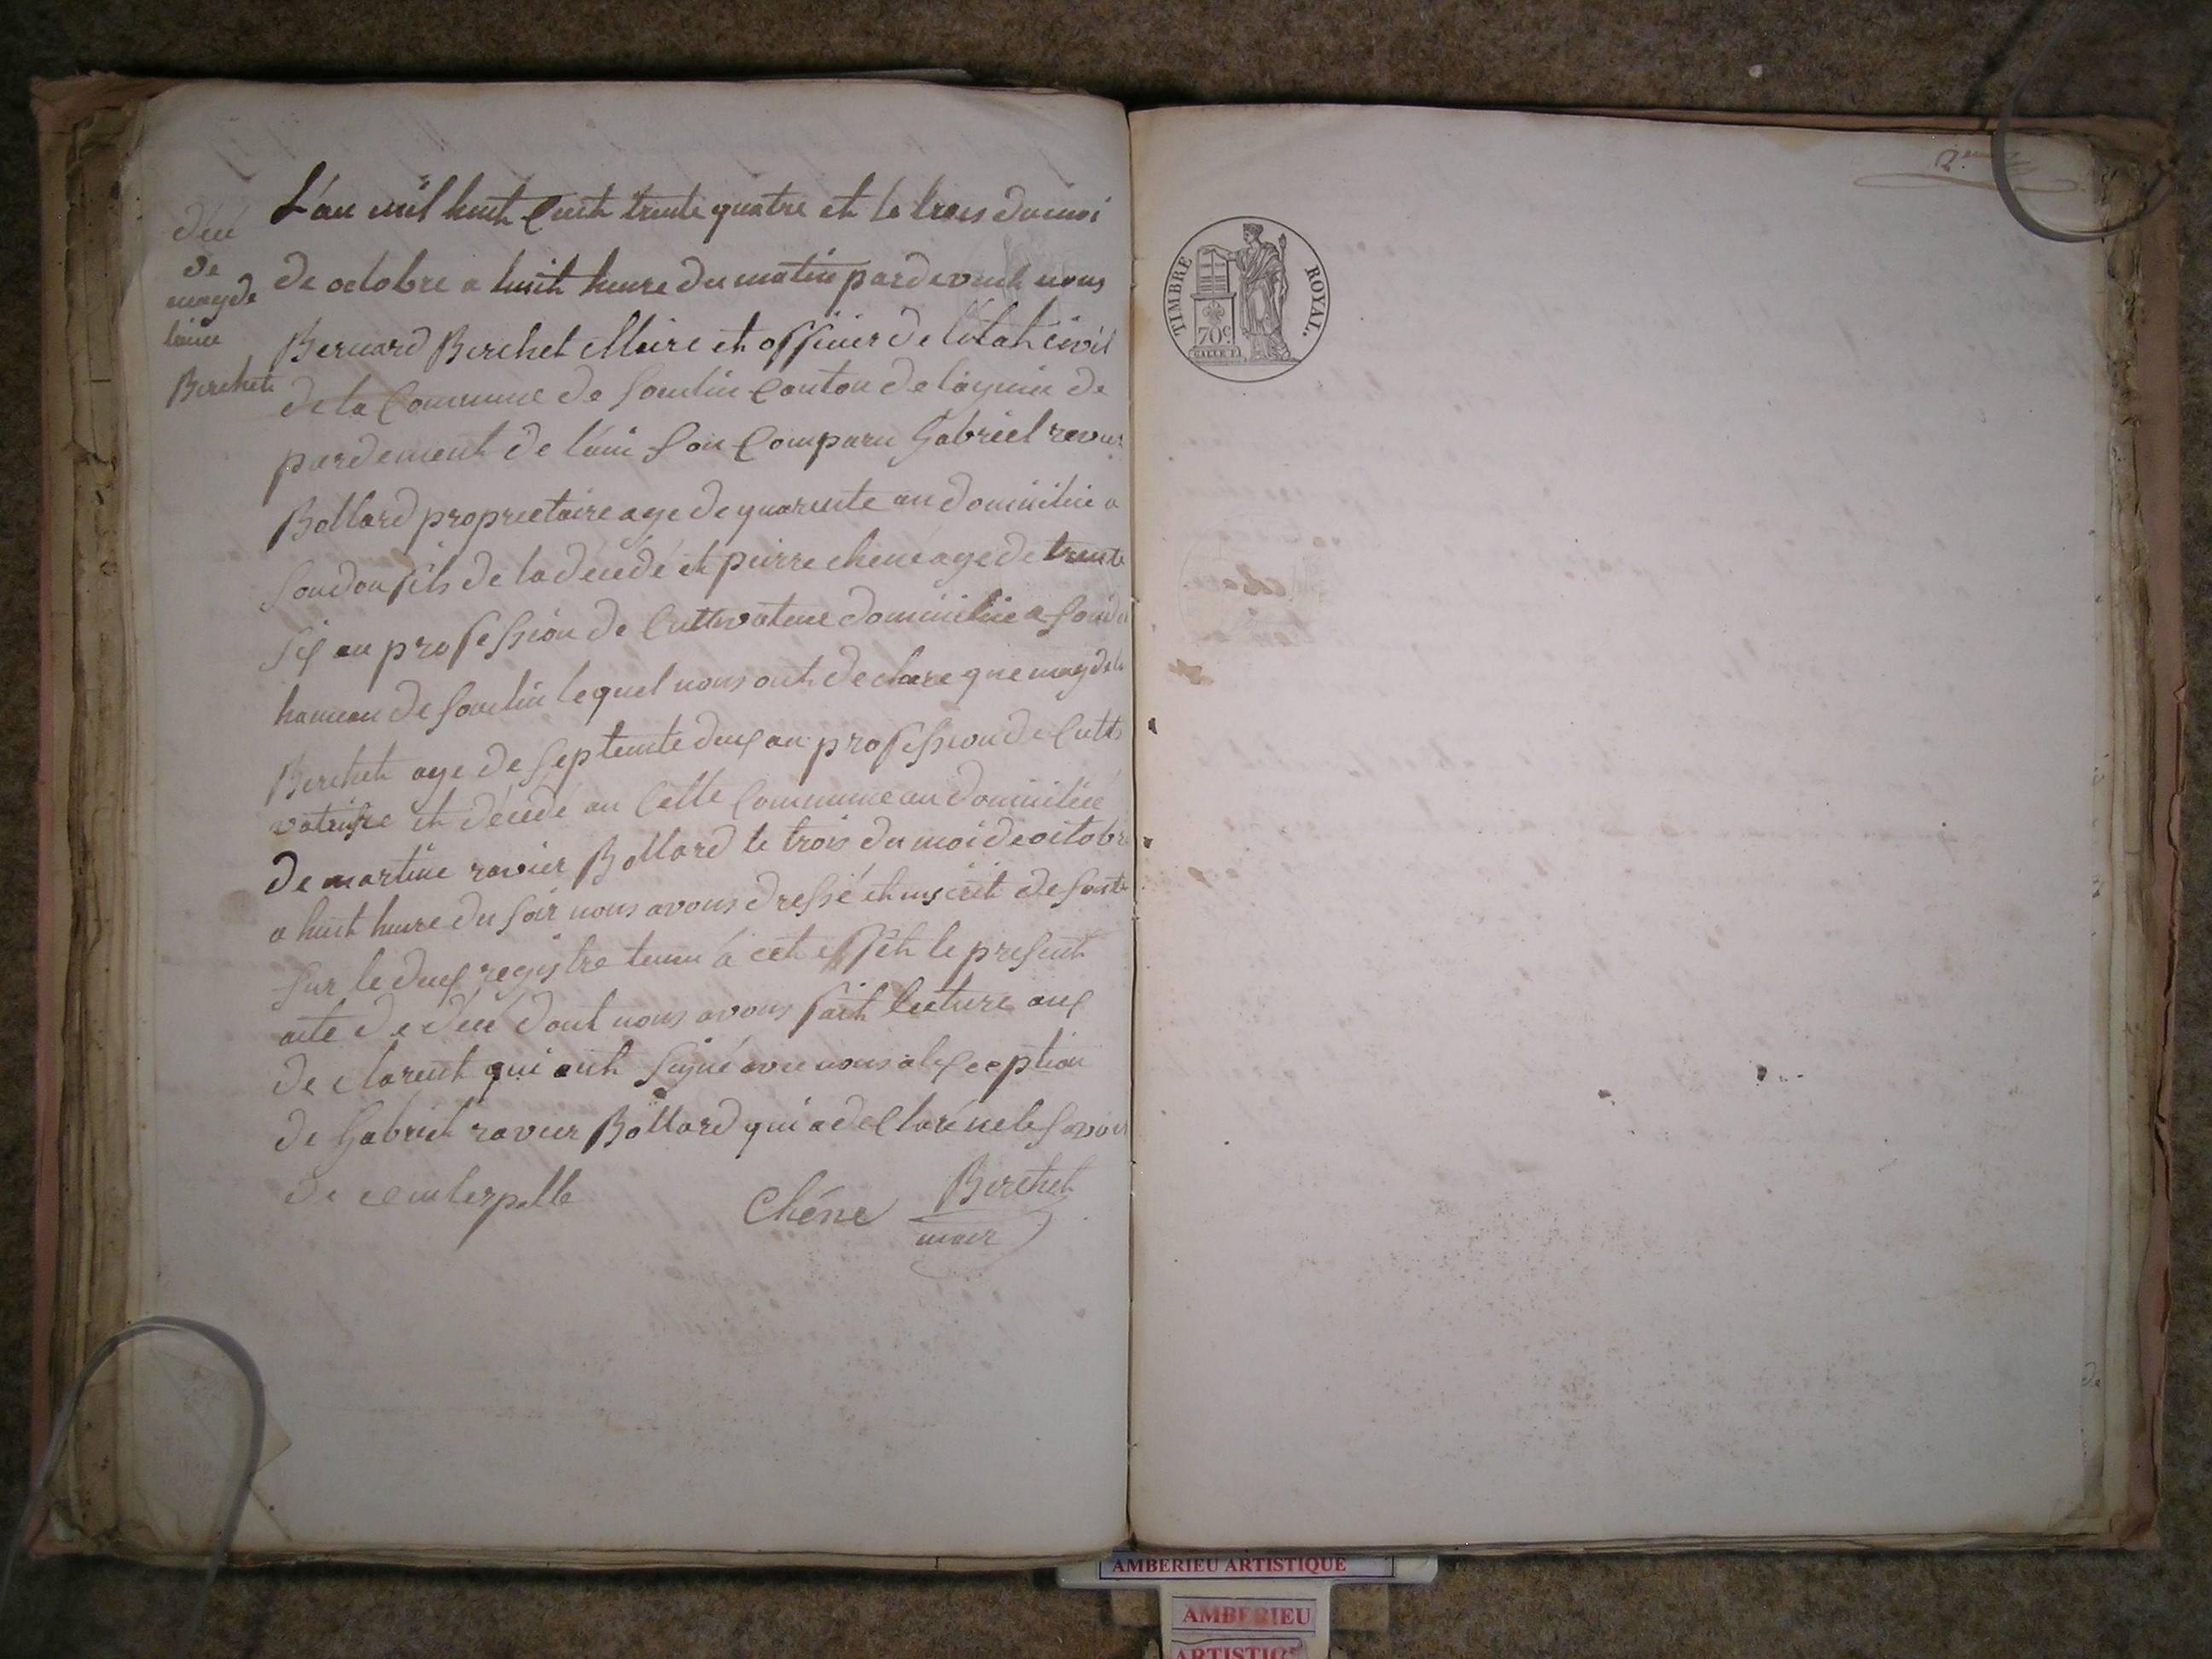 décé
de
magde
laine
Berchet
L'an mil huit Cent trente quatre et le trois du moi
de octobre a huit heure du matin pardevent nous
Bernard Berchet Maire et officier de l'état civil
de la Commune de Soudin Canton de lagnieu de
pardement de l'ain son Comparu Gabriel ravier
Bollard proprietaire age de quarente an domicilie a
Soudon fils de la décédé et pierre chene age de trente
six an profession de Cultivateur domicilie a
hameau de Soudin lequel nous ont declare que magdele
Berchet age de septente deux an profession de Culti
vatrisse et décédé an Cette Commune au domicilié
de martine ravier Bollard le trois du moi de octobre
a huit heure du soir nous avons dressé et inscrit de suite
sur le deux registre tenu à cet effet le present
acte de décé dont nous avons fait lecture aux
declarent qui ont signé avec nous a lexception
de Gabriel ravier Bollard qui a declaré ne le savoir
de ce
Chêne
Berchet
maire
2.eme
TIMBRE ROYAL.
70c.
AMBERIEU ARTISTIQUE
AMBERIEU
ARTISTIQUE